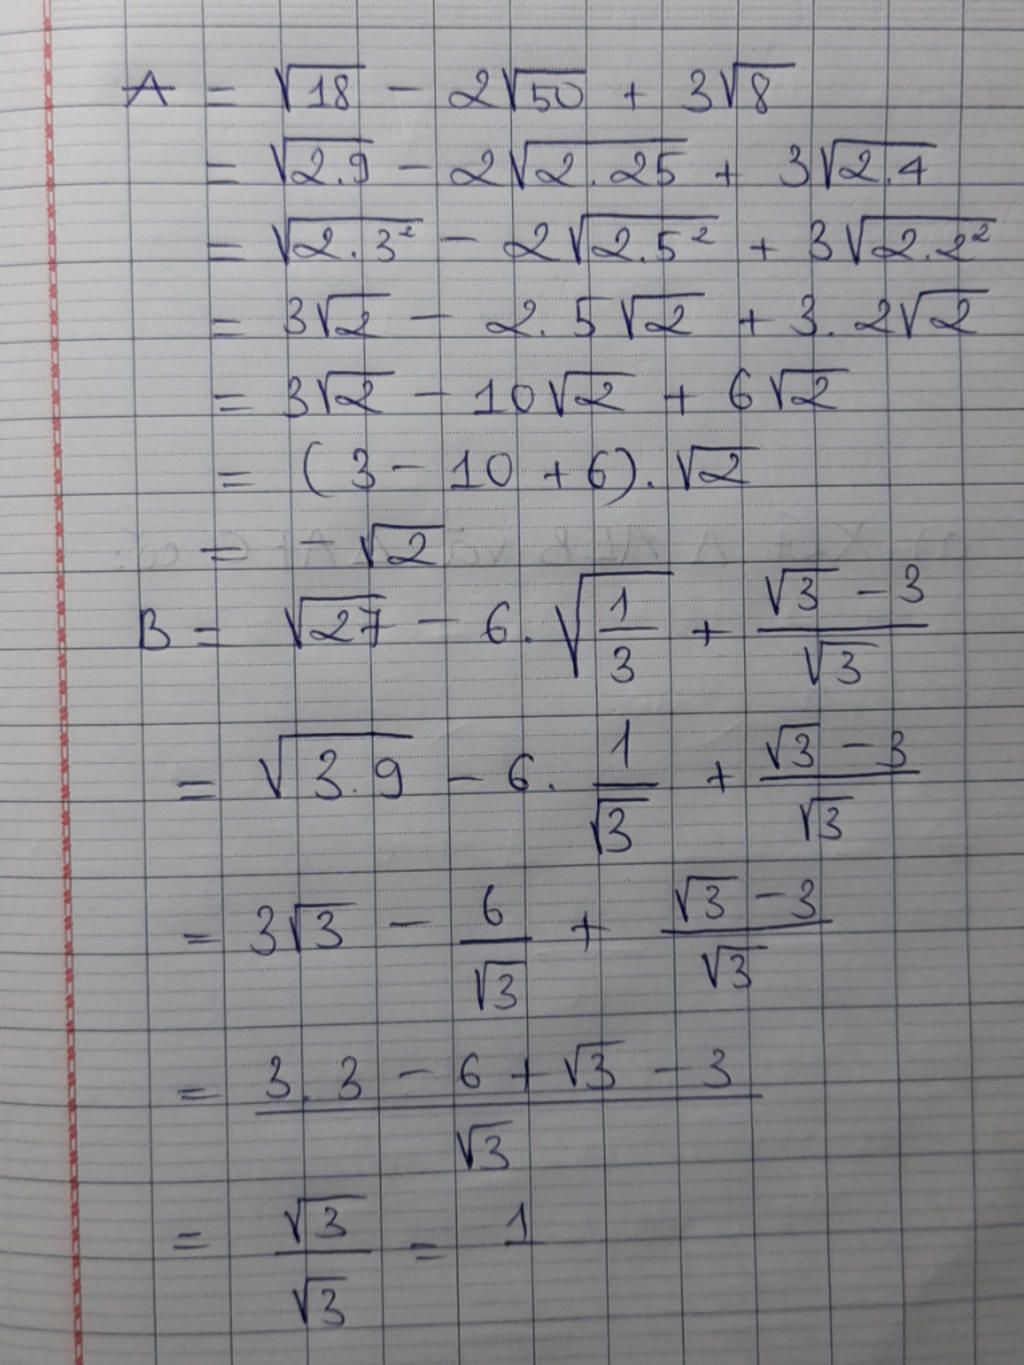 A = √18 - 2√50 + 3√8
= √2.9 - 2√2.25 + 3√2.4
= √2.3² - 2√2.5² + 3√2.2²
= 3√2 - 2.5√2 + 3.2√2
= 3√2 - 10√2 + 6√2
= (3 - 10 + 6).√2
= -√2
B = √27 - 6.√(1/3) + (√3 - 3)/√3
= √3.9 - 6.1/√3 + (√3 - 3)/√3
= 3√3 - 6/√3 + (√3 - 3)/√3
= (3.3 - 6 + √3 - 3)/√3
= √3/√3 = 1